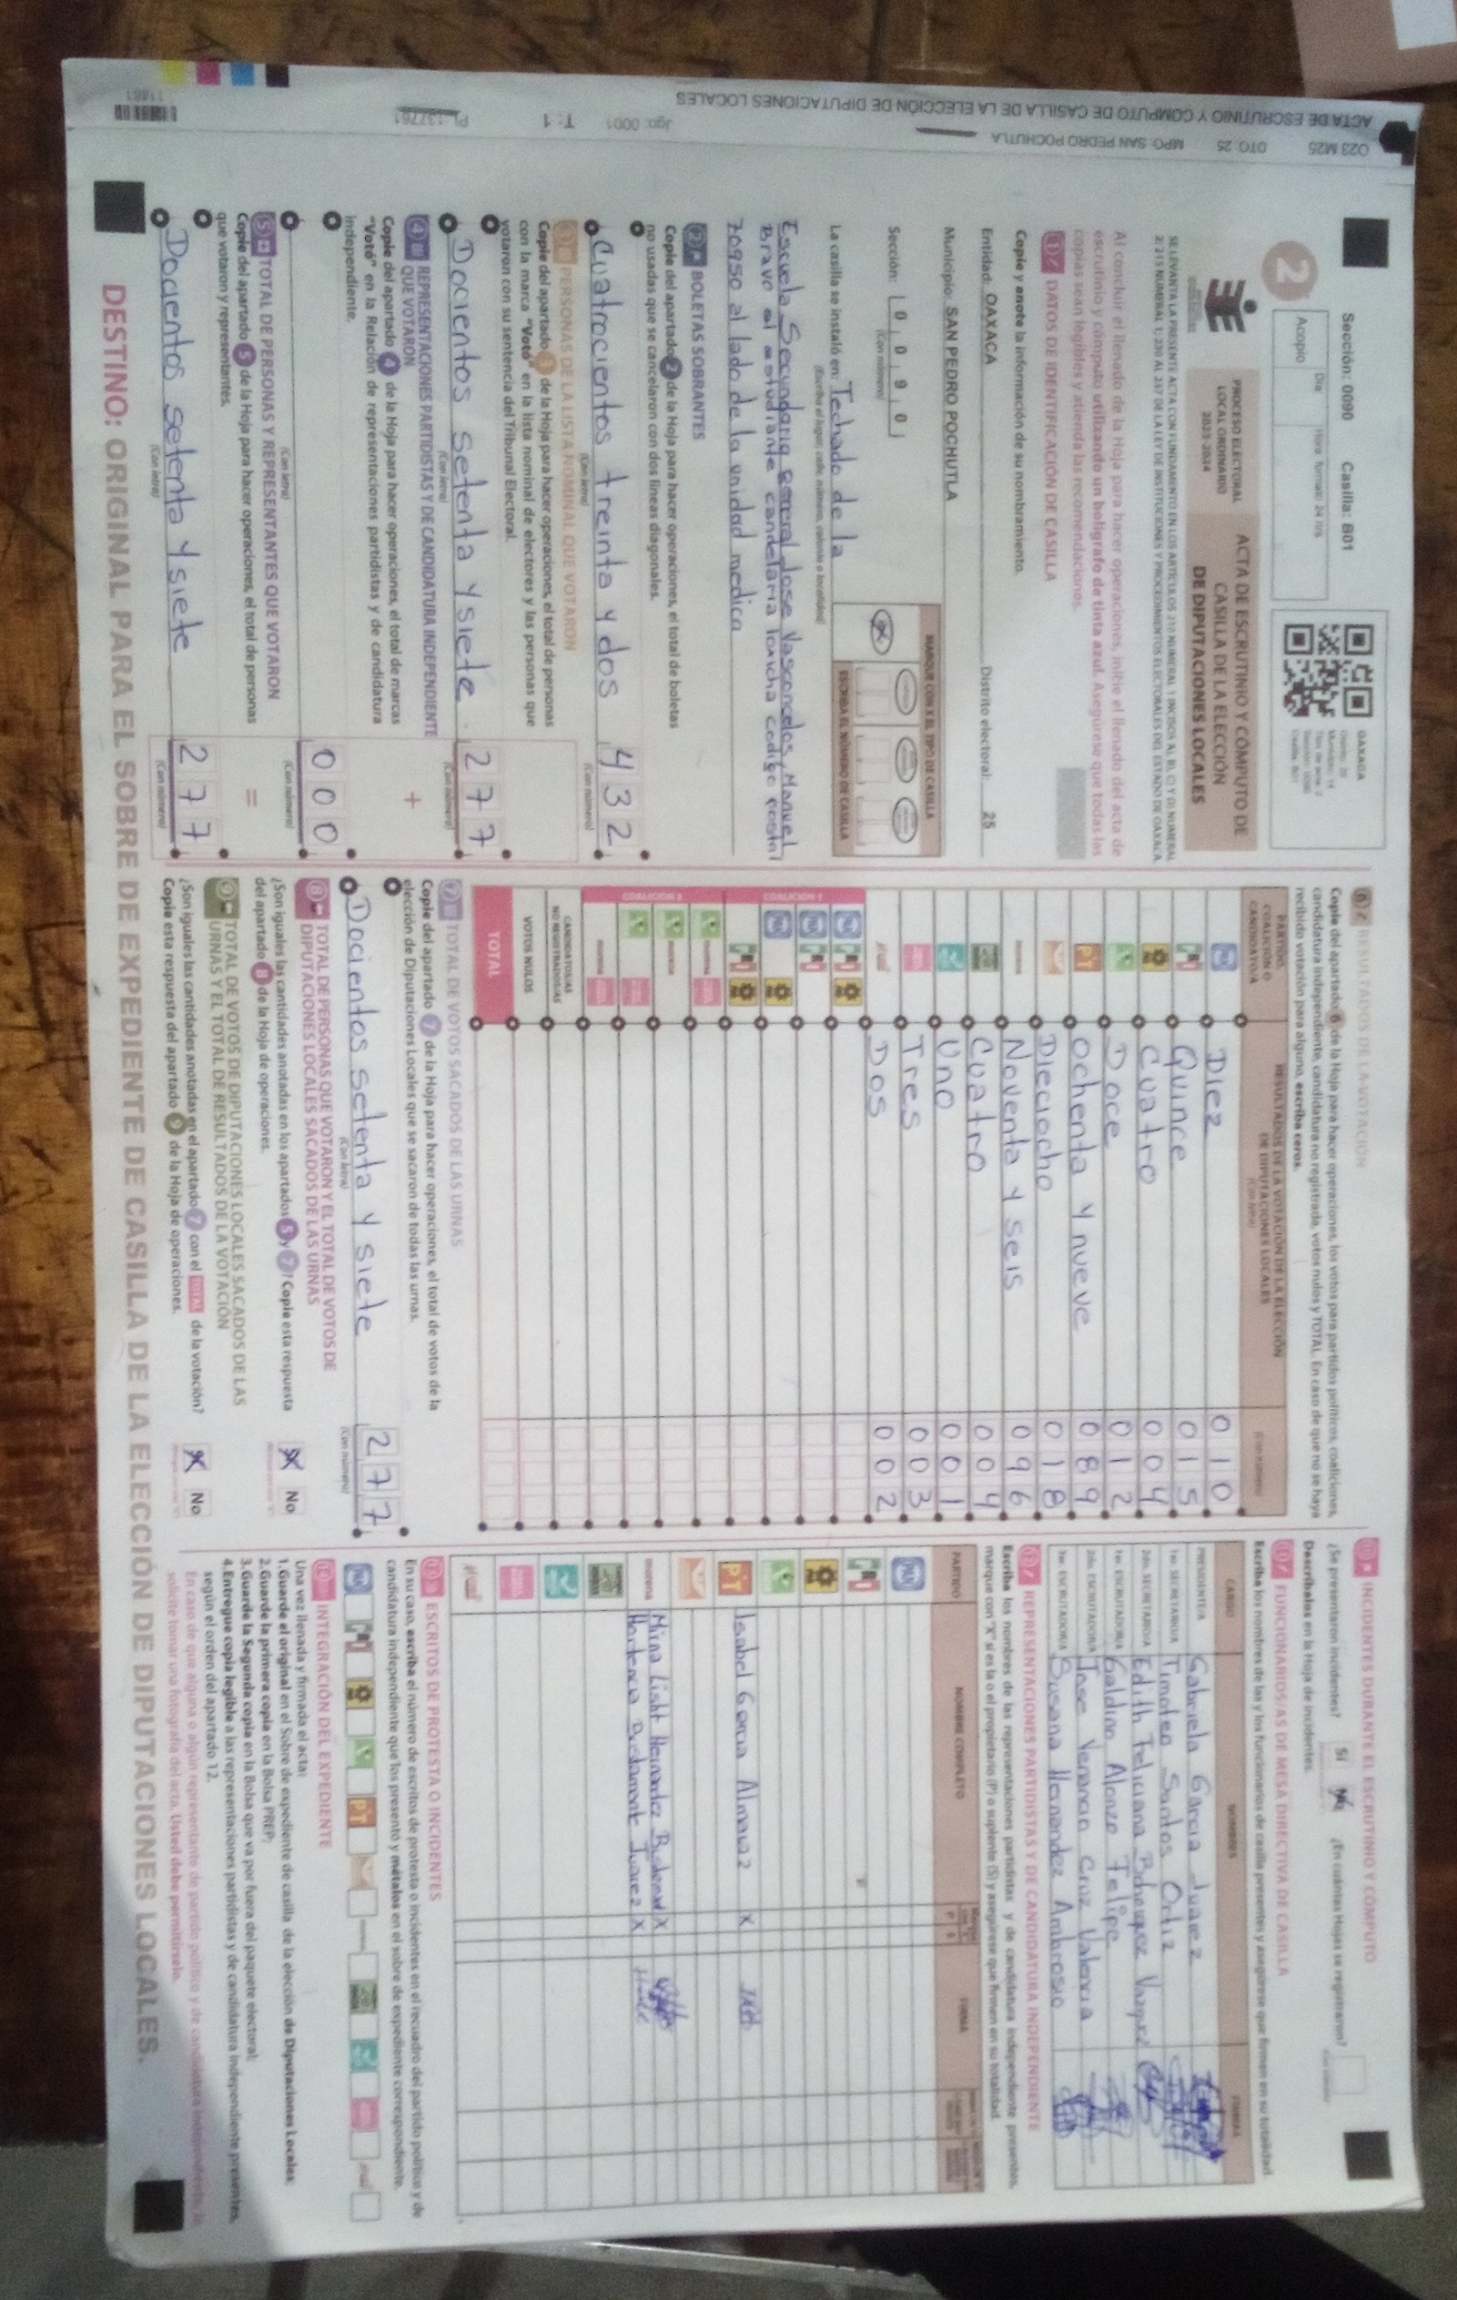 ACTA DE ESCRUTINIO Y CÓMPUTO DE CASILLA DE LA ELECCIÓN DE DIPUTACIONES LOCALES
023 M25 DTO 25 MPO: SAN PEDRO POCHUTLA
Jgo: 0001 T: 1
Sección: 0090 Casilla: B01
2
Acopio
Día
OAXACA
PROCESO ELECTORAL
LOCAL ORDINARIO
2023-2024
ACTA DE ESCRUTINIO Y CÓMPUTO DE
CASILLA DE LA ELECCIÓN
DE DIPUTACIONES LOCALES
Al concluir el llenado de la Hoja para hacer operaciones, inicie el llenado del acta de
escrutinio y cómputo utilizando un bolígrafo de tinta azul. Asegúrese que todas las
copias sean legibles y atienda las recomendaciones.
1 DATOS DE IDENTIFICACIÓN DE CASILLA
Copie y anote la información de su nombramiento.
Entidad: OAXACA Distrito electoral: 25
Municipio: SAN PEDRO POCHUTLA
Sección: 0 0 9 0
(Con número)
MARQUE CON X EL TIPO DE CASILLA
ESCRIBA EL NÚMERO DE CASILLA
La casilla se instaló en: Techado de la
Escuela Secundaria general Jose Vasconcelos, Manuel
Bravo al estudiante candelaria loxicha codigo postal
70950 al lado de la unidad medica
2 BOLETAS SOBRANTES
Copie del apartado 2 de la Hoja para hacer operaciones, el total de boletas
no usadas que se cancelaron con dos líneas diagonales.
Cuatrocientos treinta y dos 432
(Con letra) (Con número)
3 PERSONAS DE LA LISTA NOMINAL QUE VOTARON
Copie del apartado 3 de la Hoja para hacer operaciones, el total de personas
con la marca "Votó" en la lista nominal de electores y las personas que
votaron con su sentencia del Tribunal Electoral.
Docientos setenta y siete 277
(Con letra) (Con número)
4 REPRESENTACIONES PARTIDISTAS Y DE CANDIDATURA INDEPENDIENTE
QUE VOTARON +
Copie del apartado 4 de la Hoja para hacer operaciones, el total de marcas
"Votó" en la Relación de representaciones partidistas y de candidatura
independiente.
000
(Con letra) (Con número)
5 TOTAL DE PERSONAS Y REPRESENTANTES QUE VOTARON =
Copie del apartado 5 de la Hoja para hacer operaciones, el total de personas
que votaron y representantes.
Docientos setenta y siete 277
(Con letra) (Con número)
6 RESULTADOS DE LA VOTACIÓN
Copie del apartado 6 de la Hoja para hacer operaciones, los votos para partidos políticos, coaliciones,
candidatura independiente, candidatura no registrada, votos nulos y TOTAL. En caso de que no se haya
recibido votación para alguno, escriba ceros.
PARTIDO, COALICIÓN O CANDIDATO/A
RESULTADOS DE LA VOTACIÓN DE LA ELECCIÓN
DE DIPUTACIONES LOCALES
PAN Diez 010
PRI Quince 015
Cuatro 004
Doce 012
PT ochenta y nueve 089
Dieciocho 018
Noventa y seis 096
Cuatro 004
Uno 001
Tres 003
Dos 002
COALICIÓN 1
COALICIÓN 2
CANDIDATURAS
NO REGISTRADAS
VOTOS NULOS
TOTAL
7 TOTAL DE VOTOS SACADOS DE LAS URNAS
Copie del apartado 7 de la Hoja para hacer operaciones, el total de votos de la
elección de Diputaciones Locales que se sacaron de todas las urnas.
Docientos setenta y siete 277
(Con letra) (Con número)
8 TOTAL DE PERSONAS QUE VOTARON Y EL TOTAL DE VOTOS DE
DIPUTACIONES LOCALES SACADOS DE LAS URNAS
¿Son iguales las cantidades anotadas en los apartados 5 y 7? Copie esta respuesta
del apartado 8 de la Hoja de operaciones.
No
9 TOTAL DE VOTOS DE DIPUTACIONES LOCALES SACADOS DE LAS
URNAS Y EL TOTAL DE RESULTADOS DE LA VOTACIÓN
¿Son iguales las cantidades anotadas en el apartado 7 con el TOTAL de la votación?
Copie esta respuesta del apartado 9 de la Hoja de operaciones.
No
INCIDENTES DURANTE EL ESCRUTINIO Y CÓMPUTO
¿Se presentaron incidentes? Sí No ¿En cuántas Hojas se registraron?
Descríbalos en la Hoja de incidentes.
FUNCIONARIOS/AS DE MESA DIRECTIVA DE CASILLA
Escriba los nombres de las y los funcionarios de casilla presentes y asegúrese que firmen en su totalidad.
CARGO NOMBRES FIRMA
PRESIDENTE/A Gabriela Garcia Juarez
1er. SECRETARIO/A Timoteo Santos Ortiz
2do. SECRETARIO/A Edith Feliciana
1er. ESCRUTADOR/A Galdino Alonzo Felipe
2do. ESCRUTADOR/A Jose Venancio Cruz Valencia
3er. ESCRUTADOR/A Susana Hernandez Ambrosio
REPRESENTACIONES PARTIDISTAS Y DE CANDIDATURA INDEPENDIENTE
Escriba los nombres de las representaciones partidistas y de candidatura independiente presentes,
marque con "X" si es la o el propietario (P) o suplente (S) y asegúrese que firmen en su totalidad.
PARTIDO NOMBRE COMPLETO FIRMA
PAN
PRI
PT Isabel Garcia Almaraz X
morena Mirna Lisbt Hernandez X
Hortencia Bustamante Juarez X
ESCRITOS DE PROTESTA O INCIDENTES
En su caso, escriba el número de escritos de protesta o incidentes en el recuadro del partido político y de
candidatura independiente que los presentó y métalos en el sobre de expediente correspondiente.
INTEGRACIÓN DEL EXPEDIENTE
Una vez llenada y firmada el acta:
1.Guarde el original en el Sobre de expediente de casilla de la elección de Diputaciones Locales;
2.Guarde la primera copia en la Bolsa PREP;
3.Guarde la Segunda copia en la Bolsa que va por fuera del paquete electoral;
4.Entregue copia legible a las representaciones partidistas y de candidatura independiente presentes,
según el orden del apartado 12.
En caso de que alguna o algún representante de partido político y de candidatura independiente le
solicite tomar una fotografía del acta, Usted debe permitírselo.
DESTINO: ORIGINAL PARA EL SOBRE DE EXPEDIENTE DE CASILLA DE LA ELECCIÓN DE DIPUTACIONES LOCALES.